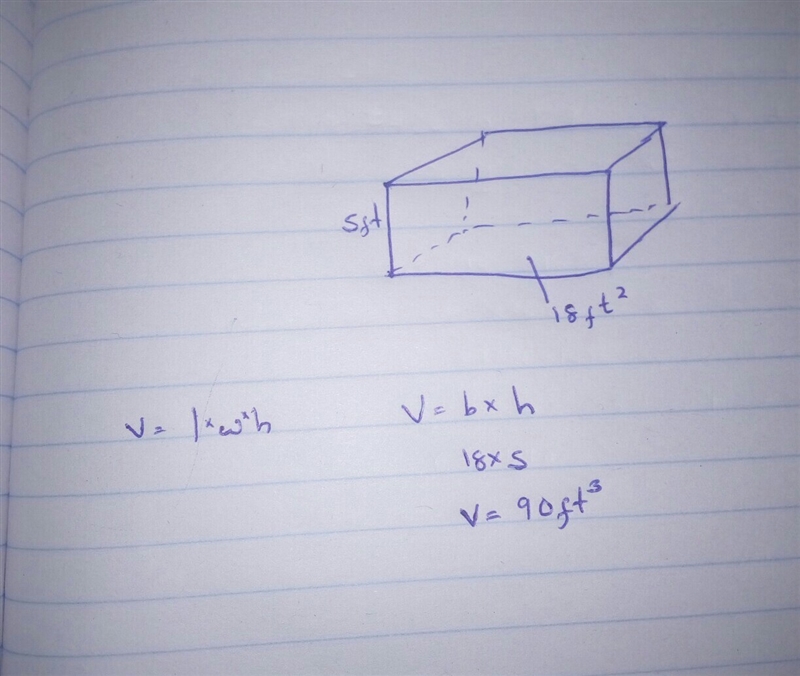 5ft
18ft²
V = l × w × h
V = b × h
18 × 5
V = 90ft³